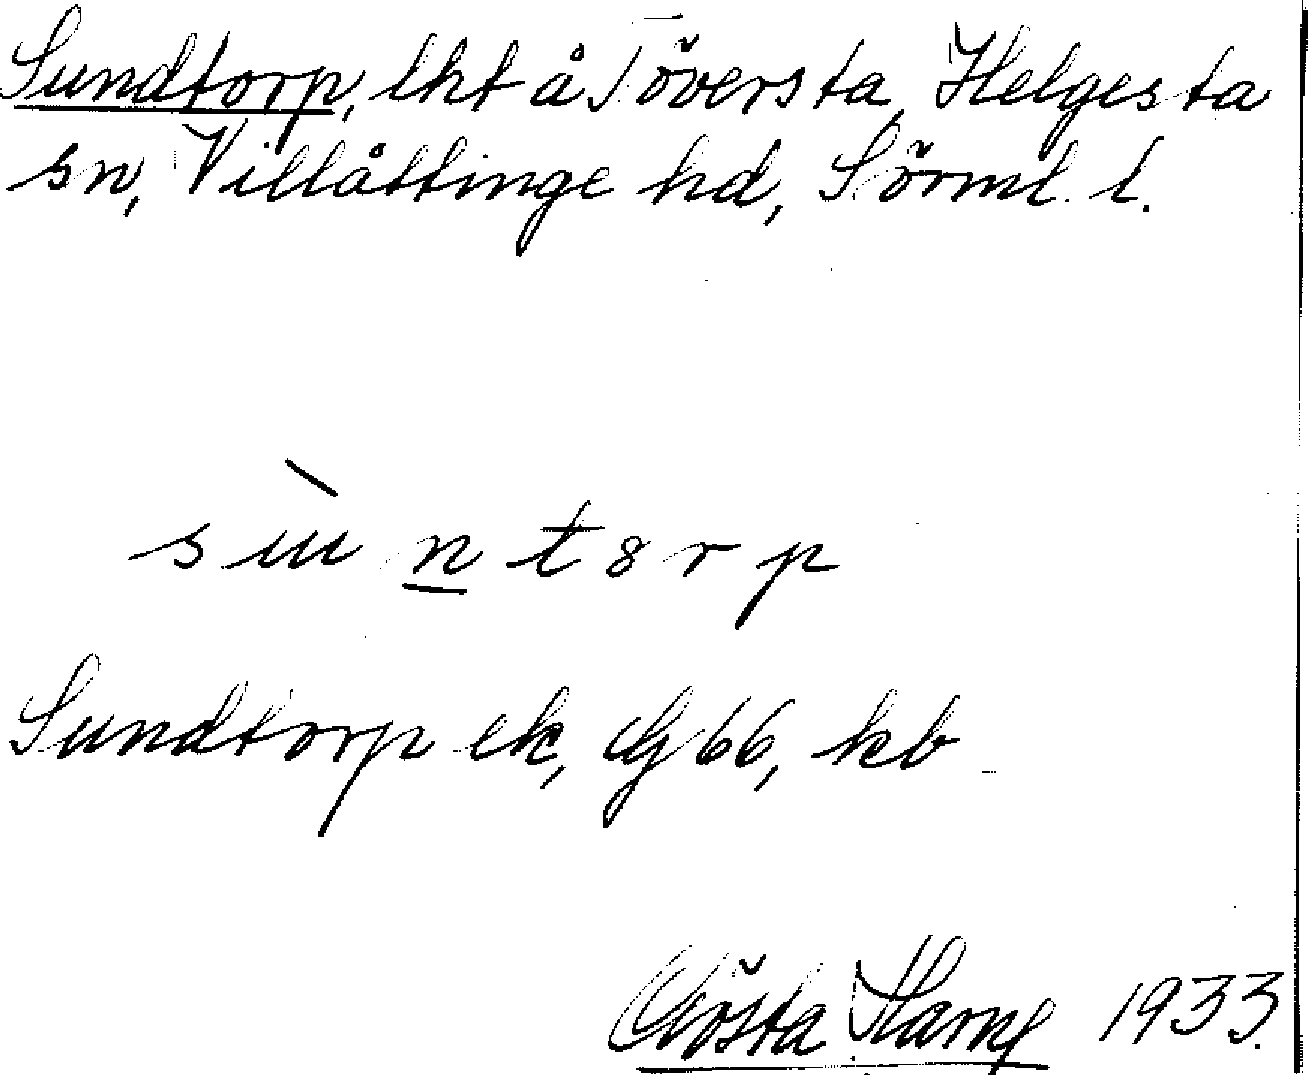 Sundtorp, lht å Töversta, Helgesta
sn, Villåttinge hd, Sörml. l.
sùn̲tɜrp
Sundtorp ek, G 66, kb
Gösta Harng 1933.